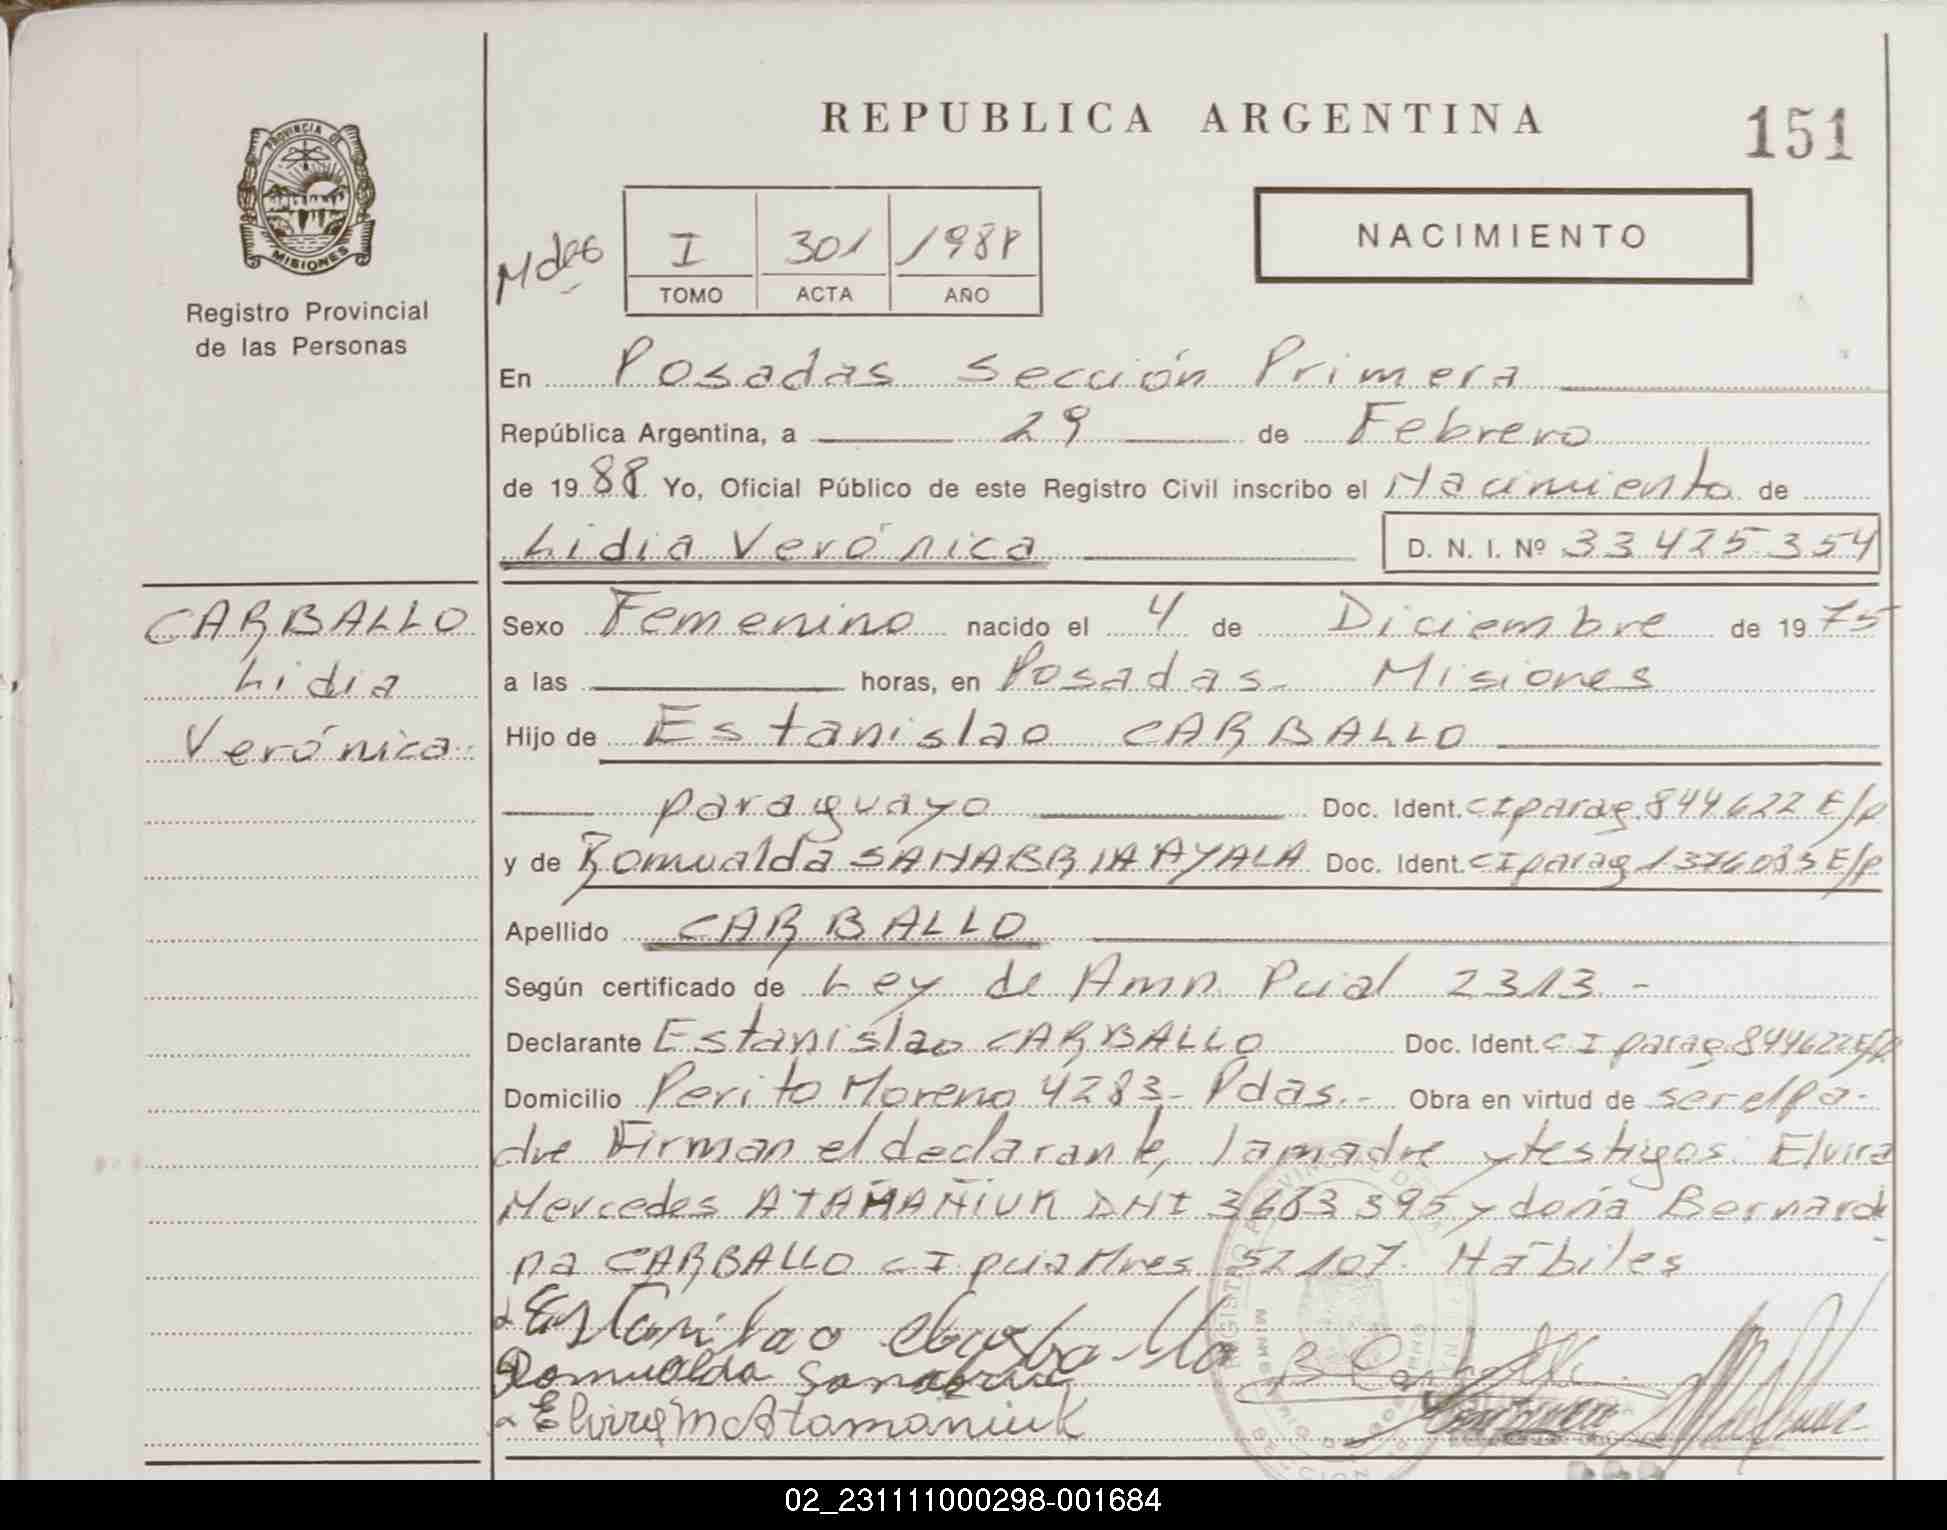 REPUBLICA ARGENTINA
151
PROVINCIA DE
MISIONES
Registro Provincial
de las Personas
Mdes
I 301 1988
TOMO ACTA AÑO
NACIMIENTO
En Posadas Sección Primera
República Argentina, a 29 de Febrero
de 1988 Yo, Oficial Público de este Registro Civil inscribo el Nacimiento de
Lidia Verónica D. N. I. Nº 33425354
CARBALLO
Lidia
Verónica
Sexo Femenino nacido el 4 de Diciembre de 1975
a las horas, en Posadas - Misiones
Hijo de Estanislao CARBALLO
paraguayo Doc. Ident. CI parag. 844622 E/p
y de Romualda SANABRIA AYALA Doc. Ident. CI parag 1376083 E/p
Apellido CARBALLO
Según certificado de Ley de Amn Pcial 2313 -
Declarante Estanislao CARBALLO Doc. Ident. CI parag 844622 E/p
Domicilio Perito Moreno 4283 - Pdas. - Obra en virtud de ser el pa-
dre Firman el declarante, la madre y testigos: Elvira
Mercedes ATAMAÑIUK DNI 3683395 y doña Bernardi
na CARBALLO CI pcia Mnes 52107. Hábiles
Estanilao Carballo
Romualda Sanabria
Elvira M Atamaniuk
02_231111000298-001684